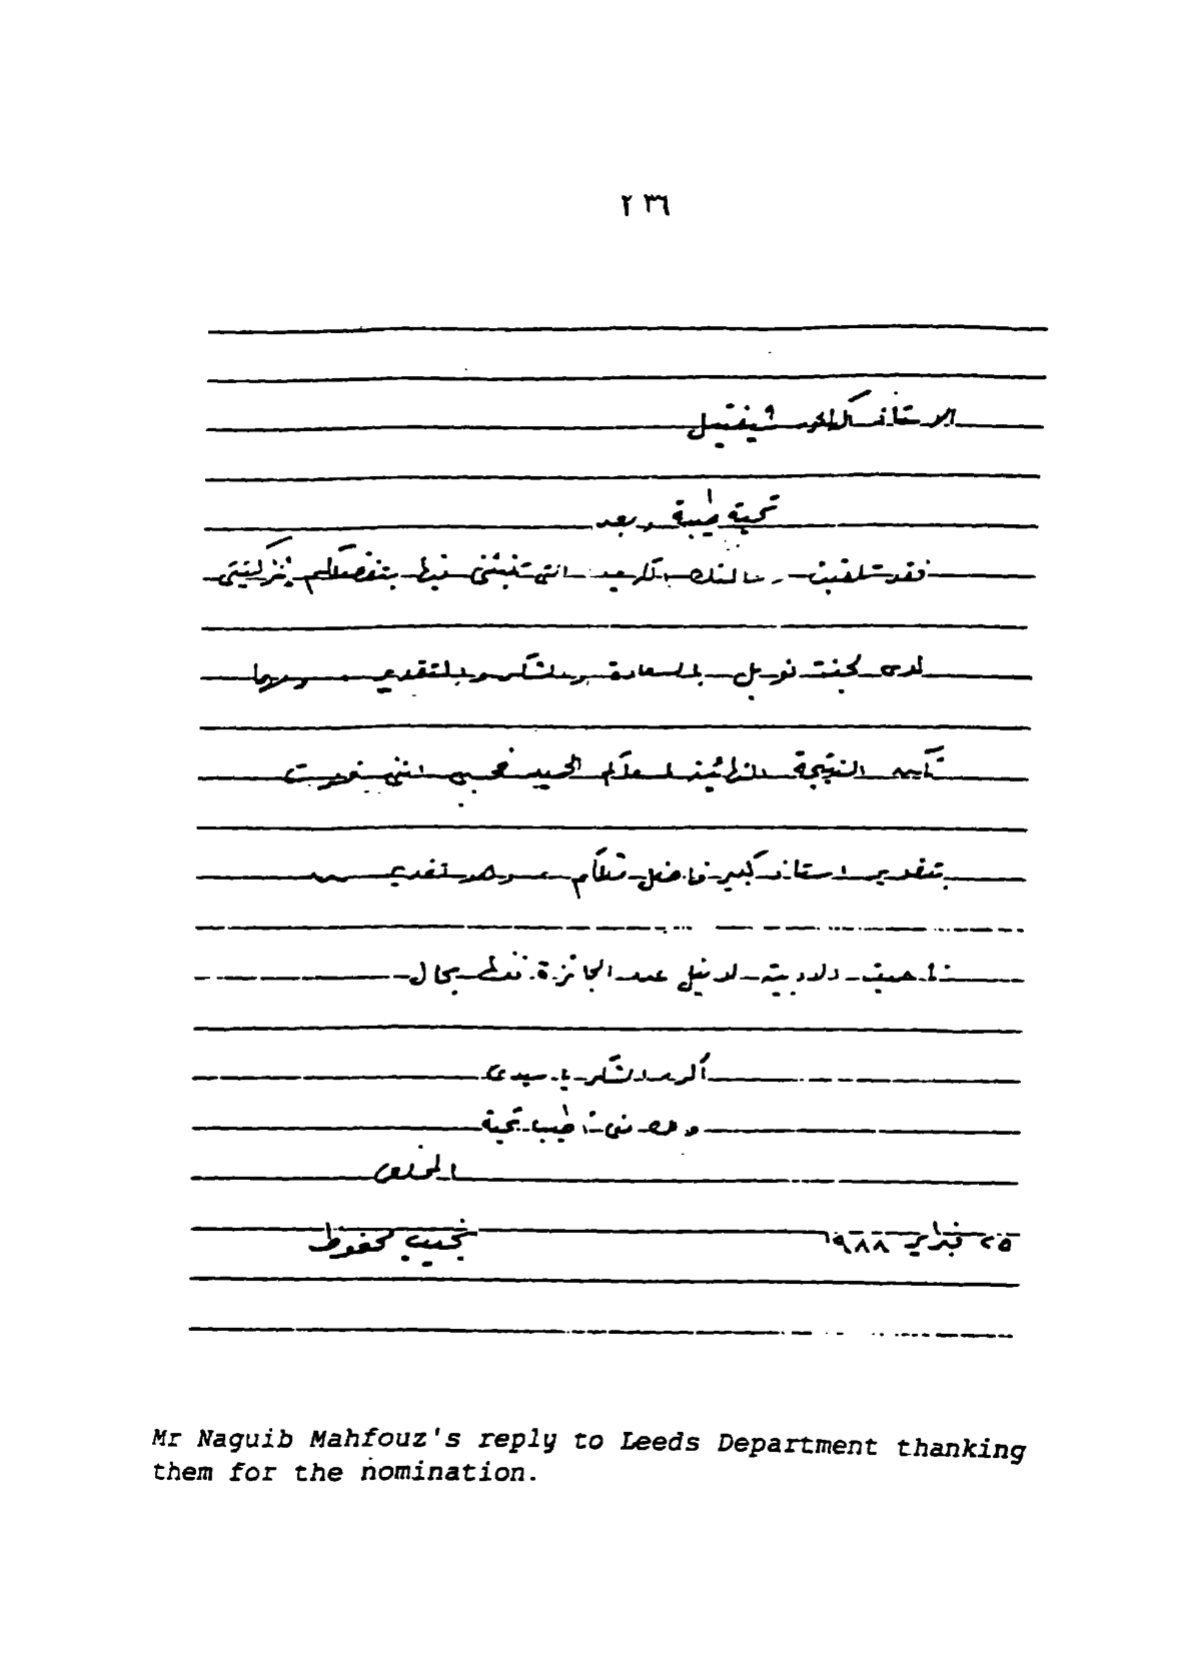 ٢٣٦
الاستاذ الدكتور شيفتيل
تحية طيبة وبعد
فقد تلقيت رسالتك الكريمة التى تنبئنى فيها بتفضلكم بتزكيتى
لدى لجنة نوبل بالسعادة والشكر والتقدير ومهما
تكن النتيجة النهائية لسعيكم الحميد فحسبى اننى فزت
بتقدير استاذ كبير فاضل مثلكم وهو تقدير
لا يقل عن الجائزة نفسها بحال
أكرر الشكر يا سيدى
ومنى أطيب تحية
المخلص
نجيب محفوظ
٢٥ فبراير ١٩٨٨
Mr Naguib Mahfouz's reply to Leeds Department thanking
them for the nomination.